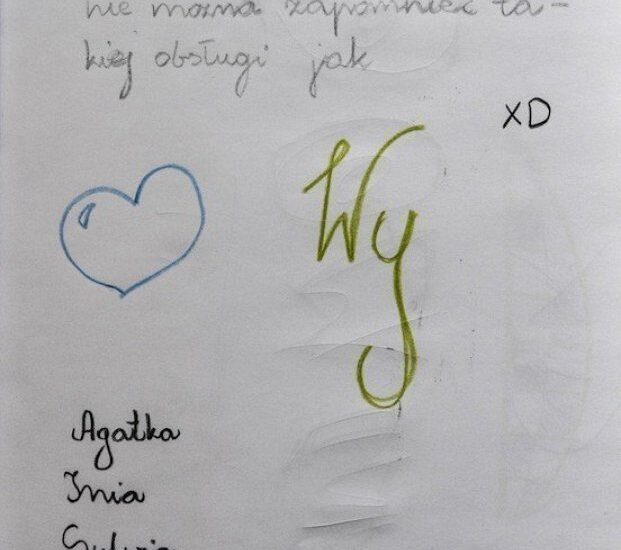 nie można zapomnieć ta-
kiej obsługi jak
XD
Wy
Agatka
Inia
Sylwia